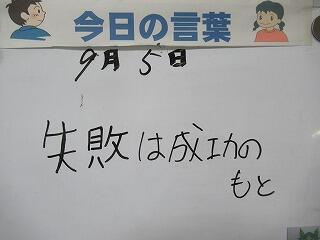 今日の言葉
9月5日
失敗は成功の
もと